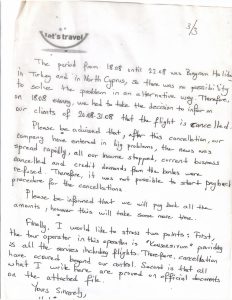 3/3
let's travel
The period from 18.08 until 22.08 was Bayram Holiday
In Turkey and in North Cyprus, so there was no possibility
to solve the problem in an alternative way. Therefore,
on 18.08 evening, we had to take the decision to inform
our clients of 20.08-31.08 that the flight is cancelled.
Please be advised that, after this cancellation, our
company have entered in big problems, the news was
spread rapidly, all our income stopped, current business
cancelled and credit demands from the banks were
refused. Therefore, it was not possible to start payback
procedure for the cancellations
Please be informed that we will pay back all the
amounts, however this will take some more time.
Finally, I would like to stress two points: First,
the tour operator in this operation is providing
is all the services including flights. Therefore, cancellation
have occured beyond our control. Second is that all
what I write here are proved as official documents
on the attached file.
Yours Sincerely,